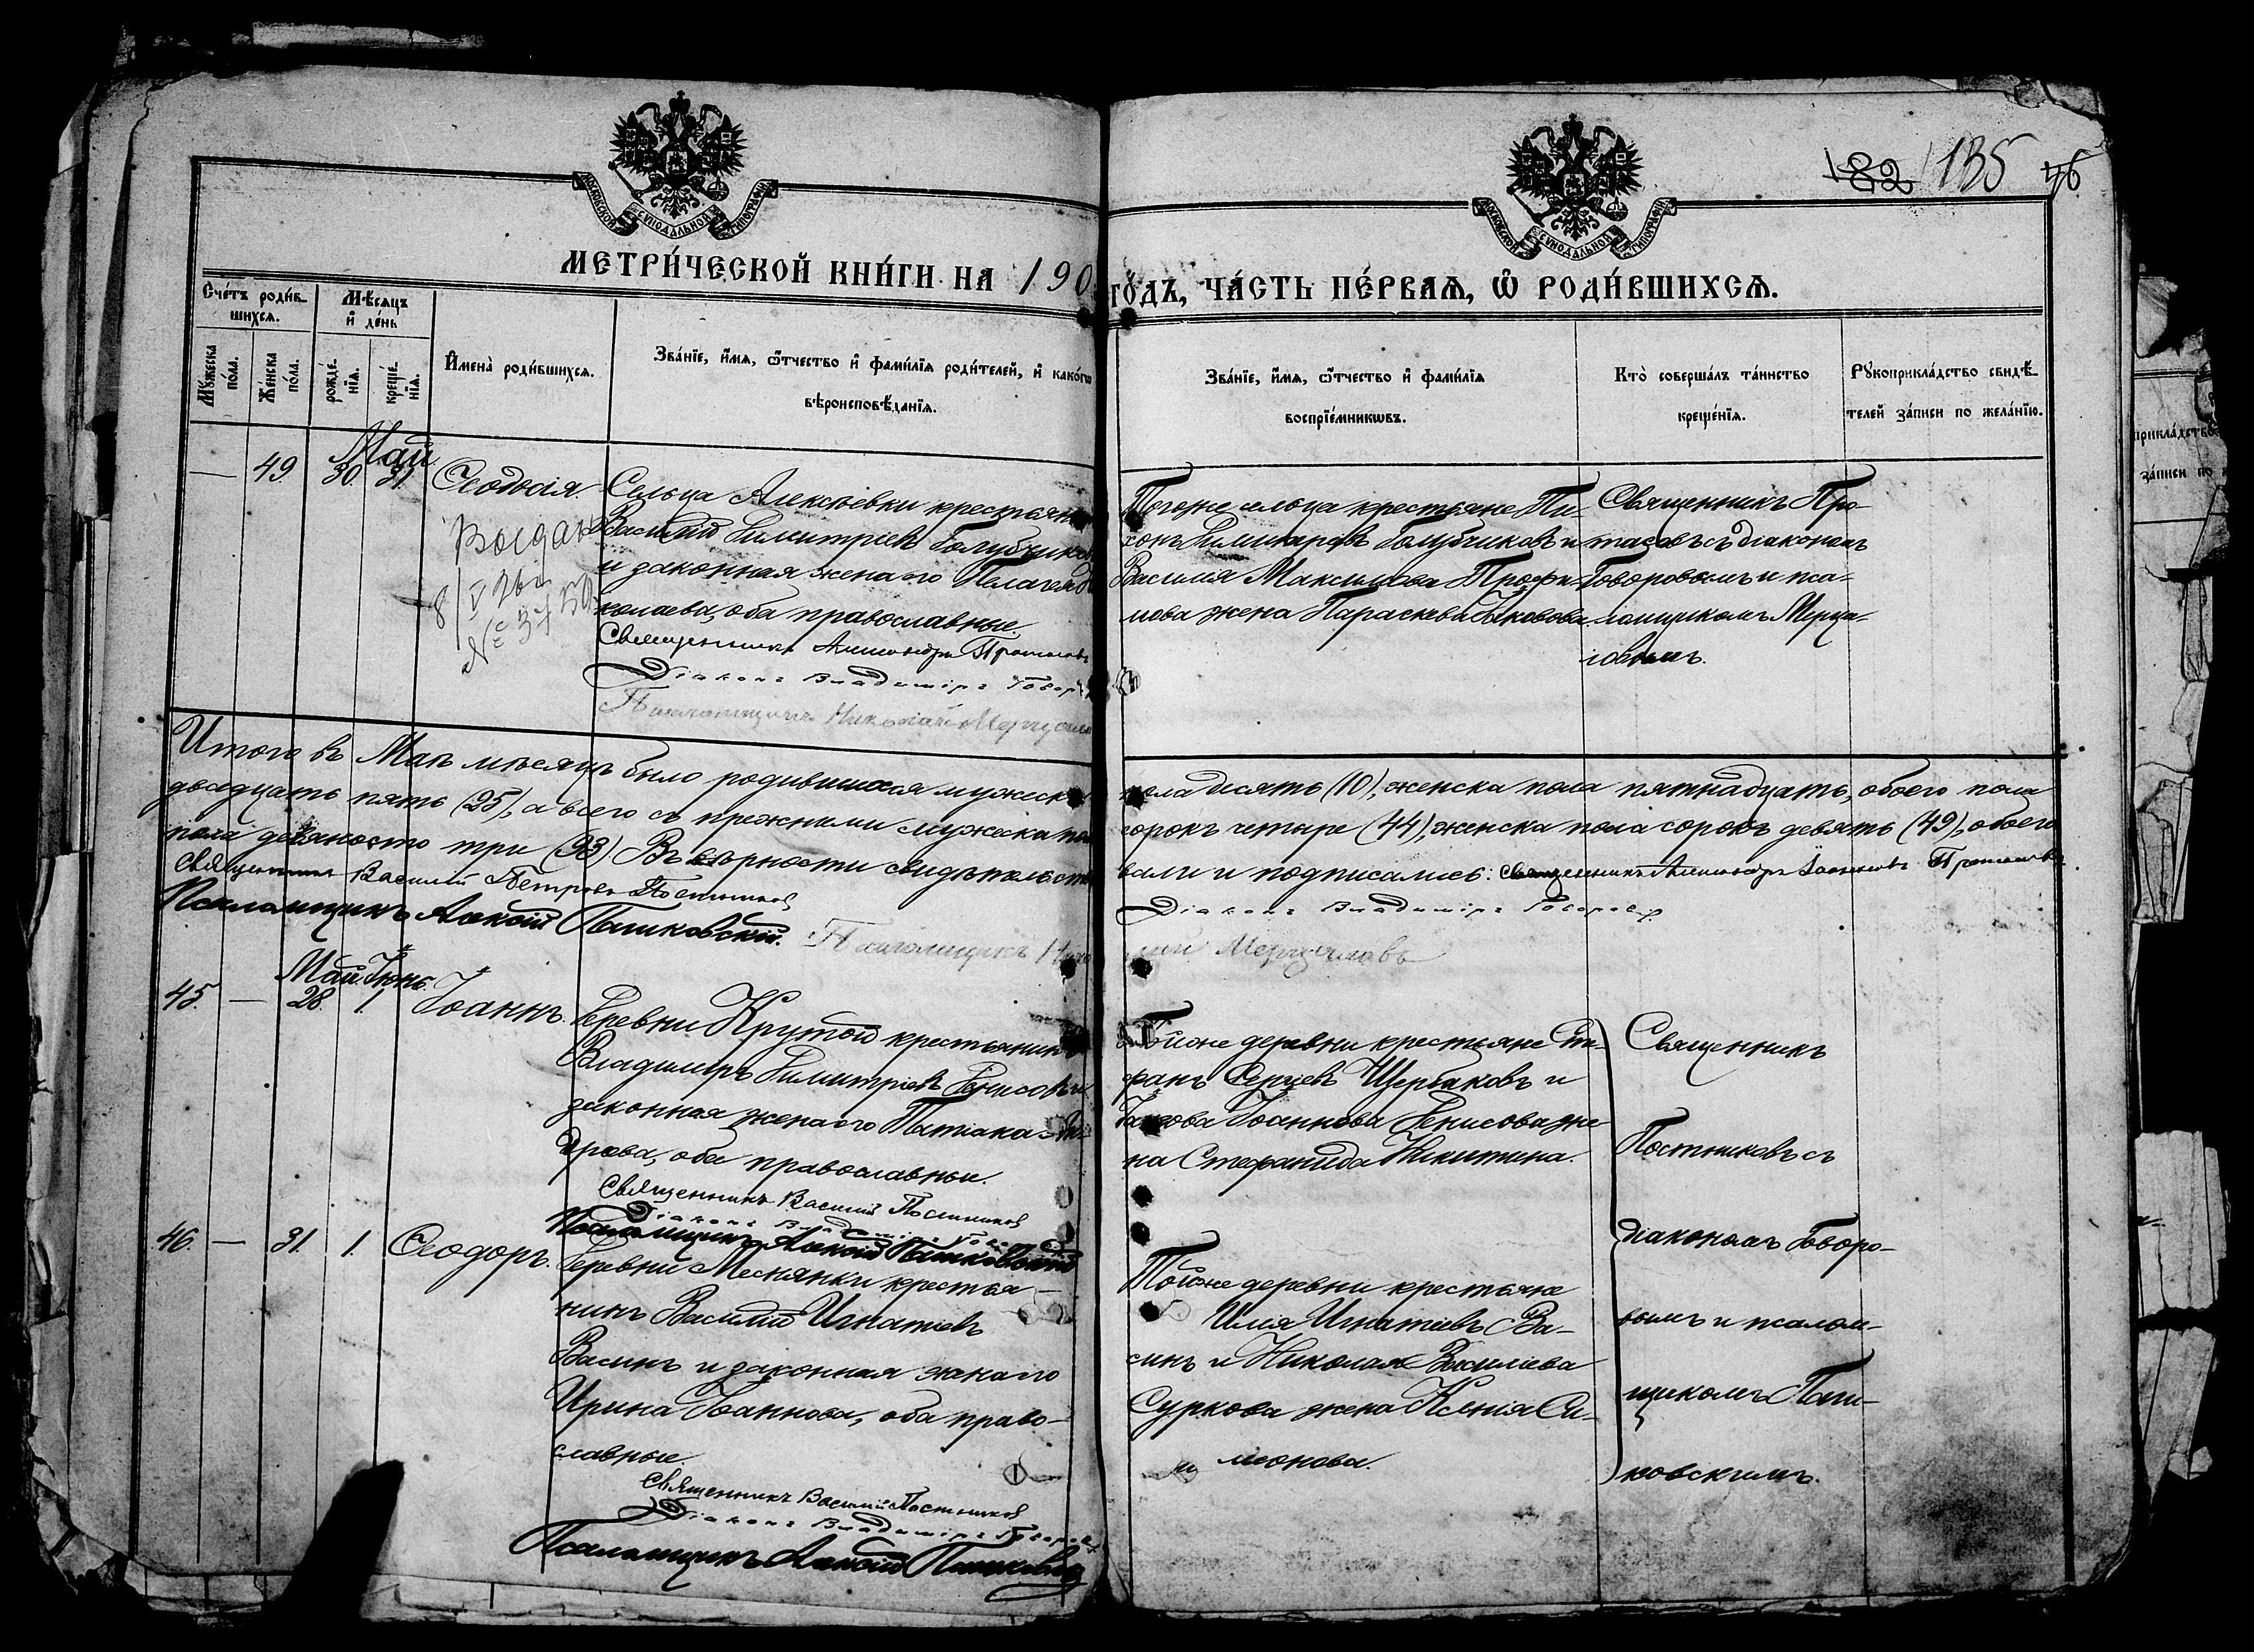 182 135 46
МОСКОВСКОЙ СУНОДАЛЬНОЙ ТИПОГРАФІИ
МОСКОВСКОЙ СУНОДАЛЬНОЙ ТИПОГРАФІИ
МЕТРИ́ЧЕСКОЙ КНИ́ГИ НА 190
ГО́ДЪ, ЧА́СТЬ ПЕ́РВАѦ, Ѡ҆ РОДИ́ВШИХСѦ.
Сче́тъ роди́в-
шихсѧ.
Мѣ́сѧцъ
и҆ де́нь
Мꙋ́жеска
по́ла.
Же́нска
по́ла.
рожде́-
нїѧ.
креще́-
нїѧ.
И҆мена̀ роди́вшихсѧ.
Зва́нїе, и҆́мѧ, ѻ҆́тчество и҆ фами́лїѧ роди́телей, и҆ како́гѡ
вѣроисповѣ́данїѧ.
Зва́нїе, и҆́мѧ, ѻ҆́тчество и҆ фами́лїѧ
воспрїе́мникѡвъ.
Кто̀ соверша́лъ та́инство
креще́нїѧ.
Рꙋкоприкла́дство свидѣ́-
телей за́писи по жела́нїю.
Май
49. 30. 31. Ѳеодосія.
Сельца Алексѣевки крестьян
Василій Димитріев Голубчико
и законная жена его Пелагея
колаева, оба православные.
Священникъ Александръ Протасовъ
Діаконъ Владиміръ Говор
Псаломщикъ Николай Мерцало
Выдан
8/V 26
№ 37
Тогоже сельца крестьяне Ти-
хонъ Голубчиковъ и
Василія Максимова Трофи-
мова жена Параскева Іаковова.
Священникъ Про-
тасовъ съ діакономъ
Говоровымъ и пса-
ломщикомъ Мерца-
ловымъ.
Итого въ Маѣ мѣсяцѣ было родившихся мужеска
пола десять (10), женска пола пятнадцать, обоего пола
двадцать пять (25), а всего съ прежними мужеска пол
сорокъ четыре (44), женска пола сорокъ девять (49), обоего
пола девяносто три (93) Въ вѣрности свидѣтельство
вали и подписались: Священникъ Александръ Протасовъ
Священникъ Василій Петровъ Постниковъ
Діаконъ Владиміръ Говоровъ
Псаломщикъ Алексій Пашковскій.
Псаломщикъ Нико
лай Мерцаловъ
Май. Іюнь.
45. 28. 1. Іоаннъ.
Деревни Крутой крестьянинъ
Владиміръ Димитріевъ Денисовъ и
законная жена его Татіана
оба православные.
Священникъ Василій Постниковъ
Діаконъ Владиміръ Говоровъ
Псаломщикъ Алексій Пашковскій
Тойже деревни крестьяне Сте-
фанъ Сергѣевъ Щербаковъ и
Іакова Іоаннова Денисова же-
на Стефанида Никитина.
Священникъ
Постниковъ съ
діакономъ Говоро-
вымъ и псалом-
щикомъ Паш-
ковскимъ.
46. 31. 1. Ѳеодоръ.
Деревни Меснянки крестья-
нинъ Василій Игнатіевъ
Васинъ и законная жена его
Ирина Іоаннова, оба право-
славные.
Священникъ Василій Постниковъ
Діаконъ Владиміръ Говоровъ
Псаломщикъ Алексій Пашковскій
Тойже деревни крестьяне
Илія Игнатіевъ Ва-
синъ и Николая Василіева
Суркова жена Ксенія Си-
меонова.